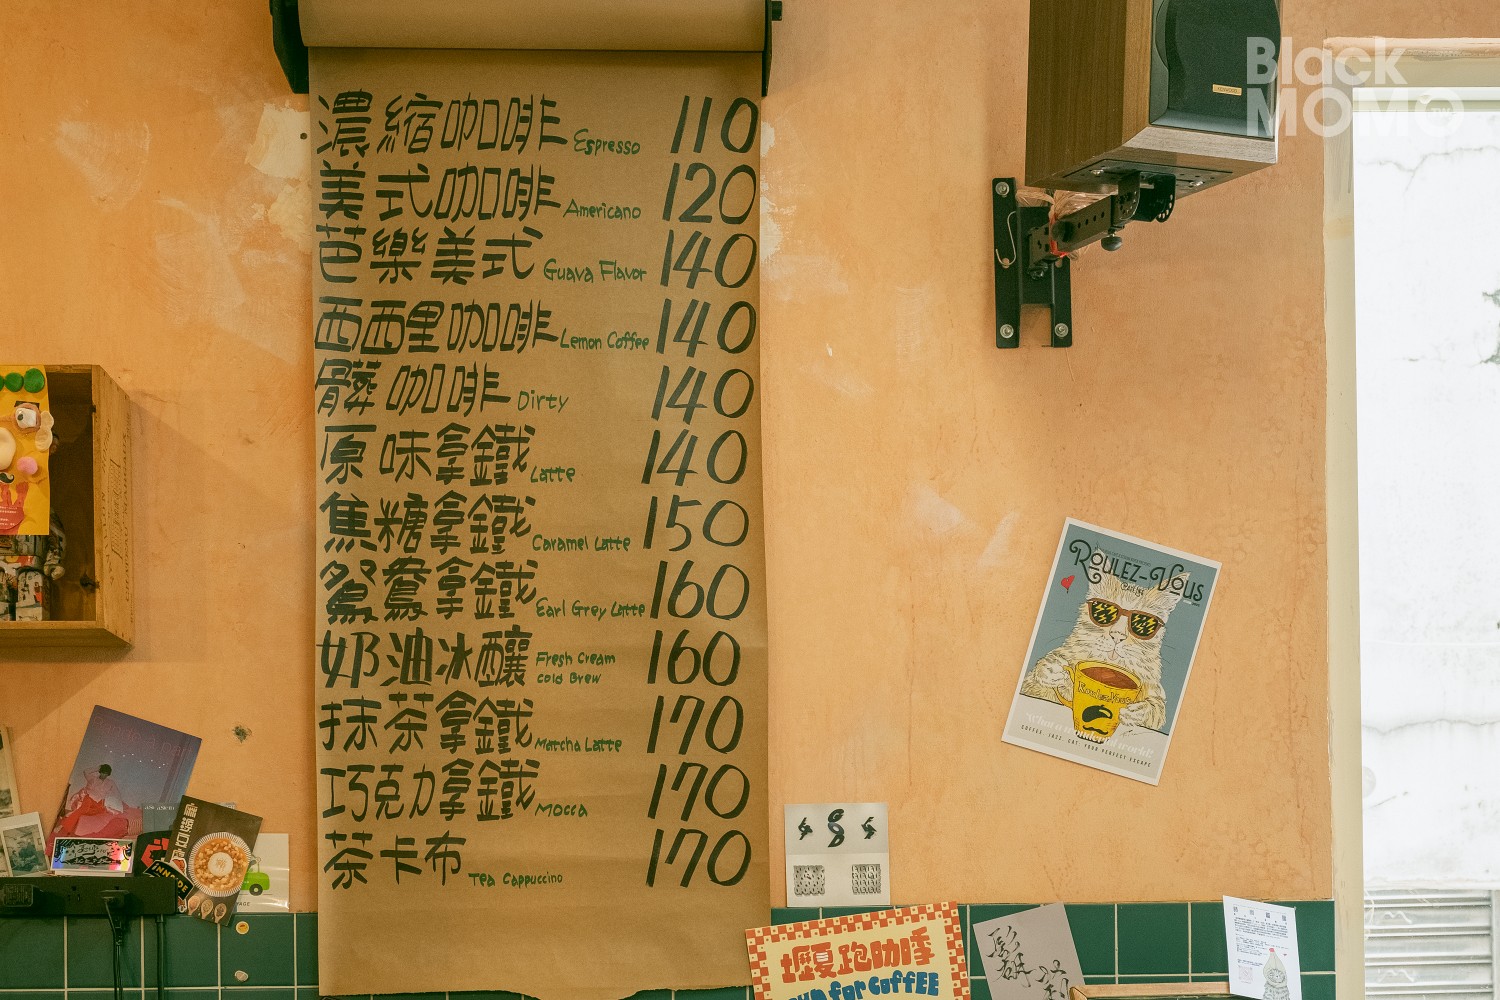 Black
MOMO
濃縮咖啡 Espresso 110
美式咖啡 Americano 120
芭樂美式 Guava Flavor 140
西西里咖啡 Lemon Coffee 140
髒咖啡 Dirty 140
原味拿鐵 Latte 140
焦糖拿鐵 Caramel Latte 150
鴛鴦拿鐵 Earl Grey Latte 160
奶油冰釀 Fresh Cream
Cold Brew 160
抹茶拿鐵 Matcha Latte 170
巧克力拿鐵 Mocca 170
茶卡布 Tea Cappuccino 170
KENWOOD
ROULEZ-VOUS
ROULEZ-VOUS
What a wonderful world!
COFFEE. JAZZ. CAT. YOUR PERFECT ESCAPE
INNSIDE
壢夏跑咖季
RUN for COFFEE